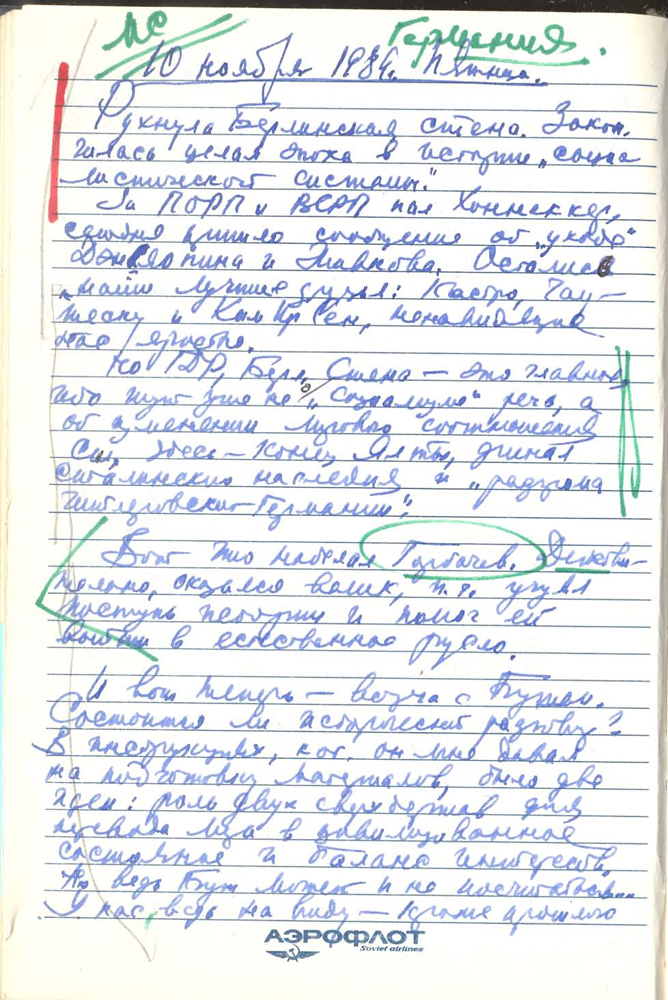 МС
Германия.
10 ноября 1989г. Пятница.
Рухнула Берлинская стена. Закон-
чилась целая эпоха в истории „социа
листической системы".
За ПОРП и ВСРП пал Хоннеккер,
сегодня пришло сообщение об „уходе"
Дэн Сяопина и Живкова. Остались
„наши лучшие друзья": Кастро, Чау-
шеску и Ким Ир Сен, ненавидящие
нас яростно.
Но ГДР, Берл. Стена — это главное,
ибо тут уже не о „социализме" речь, а
об изменении мирового соотношения
сил, здесь — конец Ялты, финал
сталинского наследия и „разгрома
гитлеровской Германии".
Вот что наделал Горбачев. Действи-
тельно, оказался велик, п.ч. учуял
поступь истории и помог ей
войти в естественное русло.
И вот теперь — встреча с Бушем.
Состоится ли исторический разговор?
В инструкциях, кот. он мне давал
на подготовку материалов, было две
идеи: роль двух сверхдержав для
перевода мира в цивилизованное
состояние и баланс интересов.
Но ведь Буш может и не посчитаться...
У нас ведь на виду — кроме прошлого
АЭРОФЛОТ
Soviet airlines